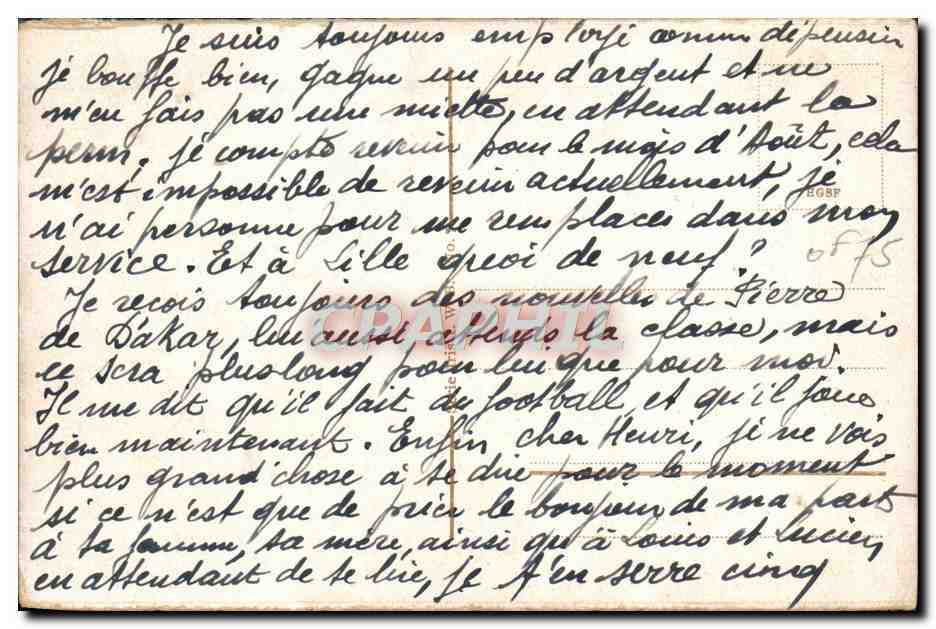 Je suis toujours employé comme dépensier
je bouffe bien, gagne un peu d'argent et ne
m'en fais pas une miette, en attendant la
perm. je compte revenir pour le mois d'Août, cela
m'est impossible de revenir actuellement, je
n'ai personne pour me remplacer dans mon
service. Et à Lille quoi de neuf?
Je reçois toujours des nouvelles de Pierre
de Dakar, lui aussi attends la classe, mais
ce sera plus long pour lui que pour moi.
Il me dit qu'il fait du football et qu'il joue
bien maintenant. Enfin, cher Henri, je ne vois
plus grand'chose à te dire pour le moment
si ce n'est que de prier le bonjour de ma part
à ta femme, ta mère, ainsi qu'à Louis et Lucien,
en attendant de te lire, je t'en serre cinq
HGBF
CPAPHIL